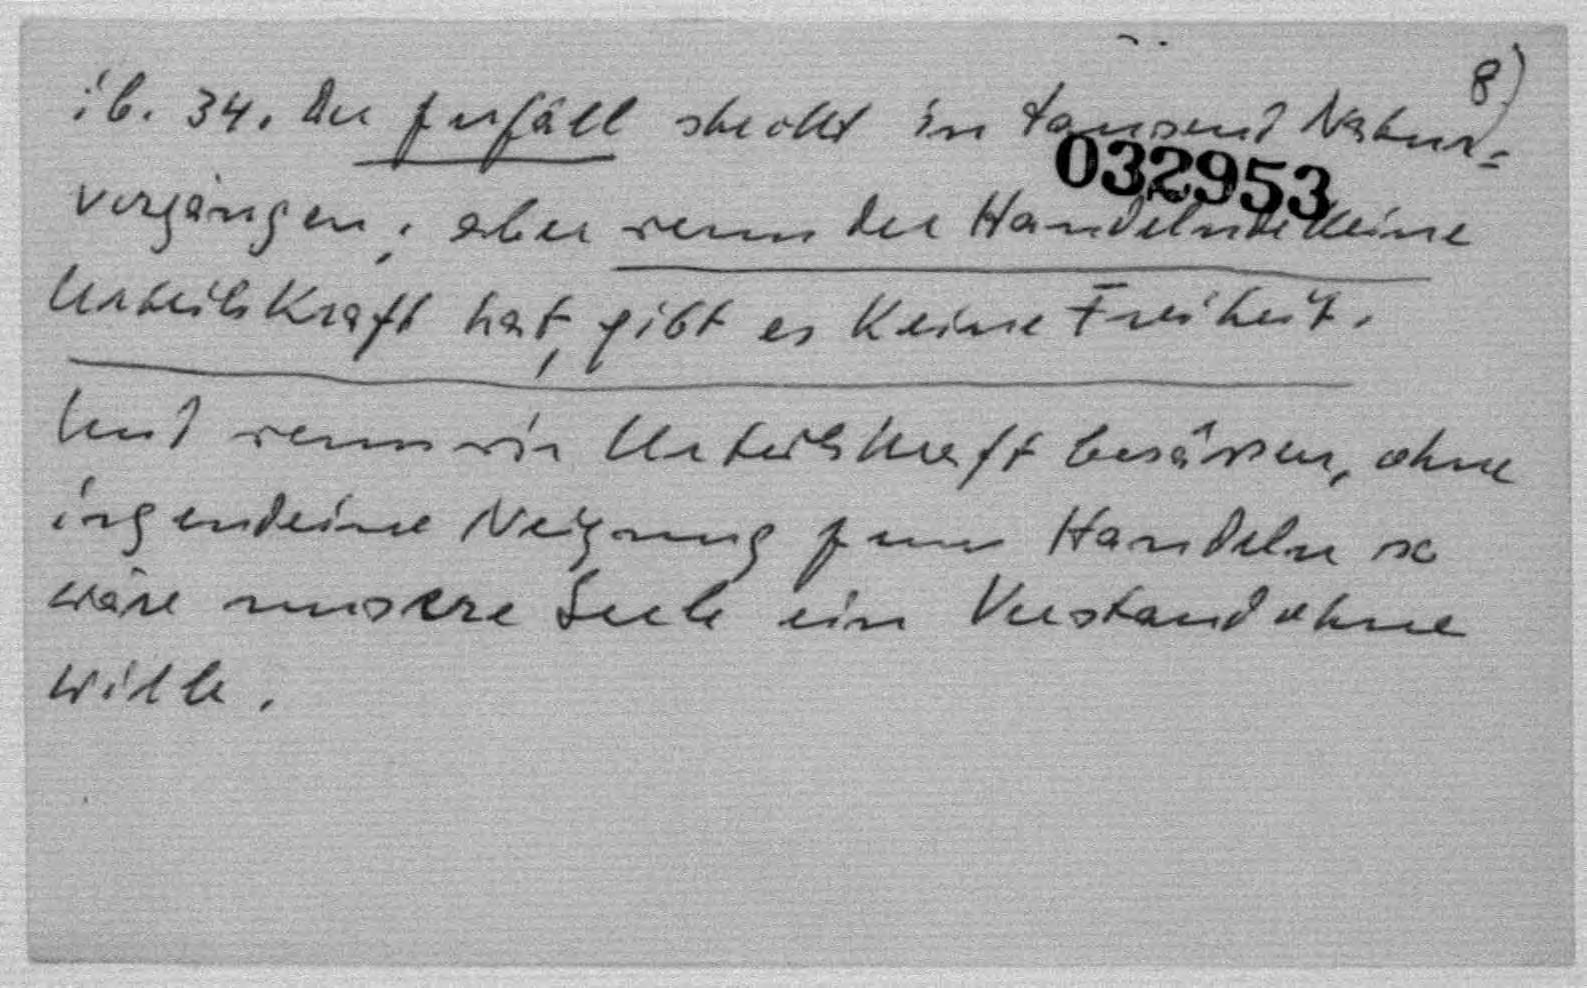 8)
ib. 34. Der Zufall steckt in tausend Natur=
032953
vorgängen; aber wenn der Handelnde keine
Urteilskraft hat, gibt es keine Freiheit.
Und wenn wir Urteilskraft besässen, ohne
irgendeine Neigung zum Handeln so
wäre unsere Seele ein Verstand ohne
Wille.